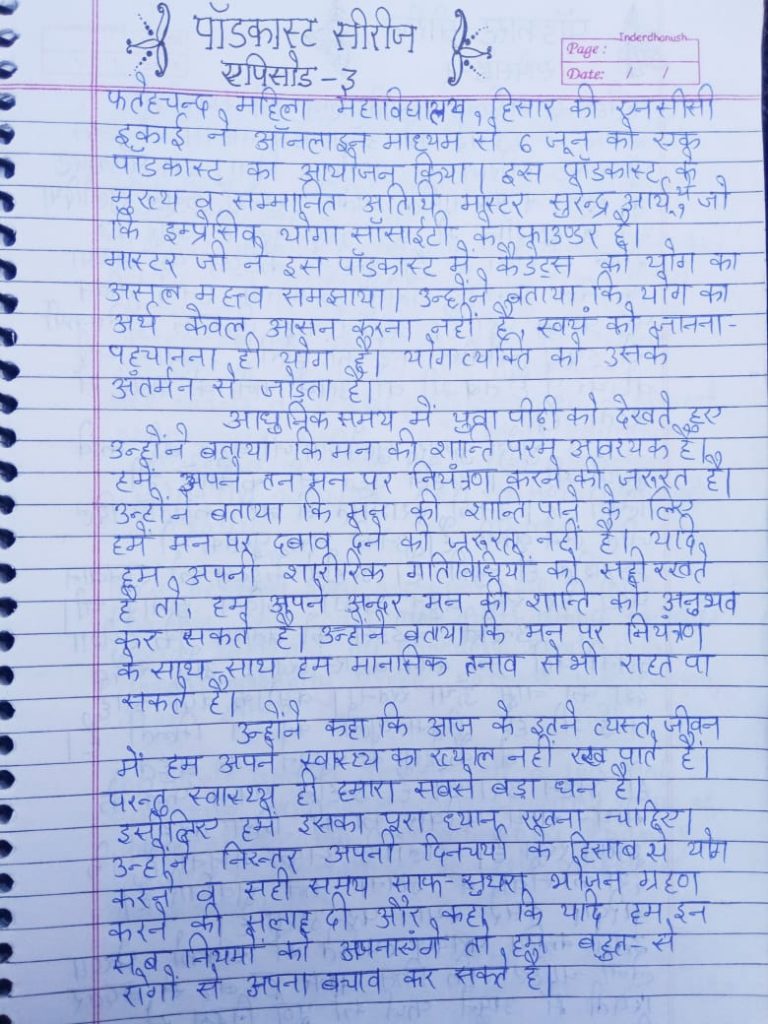 पॉडकास्ट सीरीज
एपिसोड - ३
Inderdhanush
Page :
Date: / /
फतेहचन्द महिला महाविद्यालय, हिसार की एनसीसी
इकाई ने ऑनलाइन माध्यम से 6 जून को एक
पॉडकास्ट का आयोजन किया। इस पॉडकास्ट के
मुख्य व सम्मानित अतिथि मास्टर सुरेन्द्र आर्य थे, जो
कि इम्प्रेसिव योगा सॉसाईटी के फाउण्डर है।
मास्टर जी ने इस पॉडकास्ट में कैडेट्स को योग का
असल महत्व समझाया। उन्होंने बताया कि योग का
अर्थ केवल आसन करना नहीं है, स्वयं को जानना-
पहचानना ही योग है। योग व्यक्ति को उसके
अंतर्मन से जोड़ता है।
आधुनिक समय में युवा पीढ़ी को देखते हुए
उन्होंने बताया कि मन की शान्ति परम आवश्यक है।
हमें अपने तन मन पर नियंत्रण करने की जरूरत है।
उन्होंने बताया कि मन की शान्ति पाने के लिए
हमें मन पर दबाव देने की जरूरत नहीं है। यदि
हम अपनी शारीरिक गतिविधियों को सही रखते
है तो हम अपने अन्दर मन की शान्ति को अनुभव
कर सकते है। उन्होंने बताया कि मन पर नियंत्रण
के साथ-साथ हम मानसिक तनाव से भी राहत पा
सकते है।
उन्होंने कहा कि आज के इतने व्यस्त जीवन
में हम अपने स्वास्थ्य का ख्याल नहीं रख पाते है।
परन्तु स्वास्थ्य ही हमारा सबसे बड़ा धन है।
इसीलिए हमें इसका पूरा ध्यान रखना चाहिए।
उन्होंने निरन्तर अपनी दिनचर्या के हिसाब से योग
करने व सही समय साफ सुथरा भोजन ग्रहण
करने की सलाह दी और कहा कि यदि हम इन
सब नियमों को अपनाएंगे तो हम बहुत-से
रोगों से अपना बचाव कर सकते है।